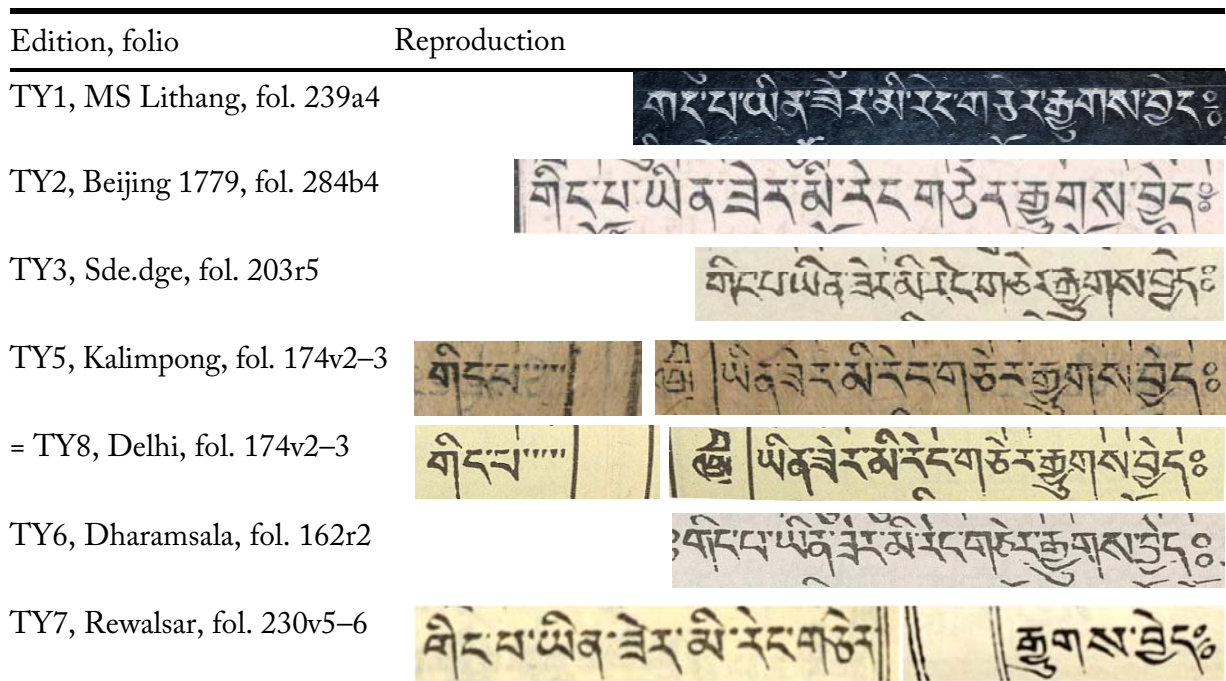 Edition, folio Reproduction
TY1, MS Lithang, fol. 239a4 པ་ཡིན་ཟེར་མི་རེང་ རྒྱུགས་བྱེད༔
TY2, Beijing 1779, fol. 284b4 གིང་པ་ཡིན་ཟེར་མི་རེང་གཅེར་རྒྱུགས་བྱེད༔
TY3, Sde.dge, fol. 203r5 གིང་པ་ཡིན་ཟེར་མི་རེང་གཅེར་རྒྱུགས་བྱེད༔
TY5, Kalimpong, fol. 174v2–3 གིང་པ་་་་་ ཡིན་ཟེར་མི་རེང་གཅེར་རྒྱུགས་བྱེད༔
= TY8, Delhi, fol. 174v2–3 གིང་པ་་་་་ ཡིན་ཟེར་མི་རེང་གཅེར་རྒྱུགས་བྱེད༔
TY6, Dharamsala, fol. 162r2 གིང་པ་ཡིན་ཟེར་མི་རེང་གཅེར་རྒྱུགས་བྱེད༔
TY7, Rewalsar, fol. 230v5–6 གིང་པ་ཡིན་ཟེར་མི་རེང་གཅེར རྒྱུགས་བྱེད༔